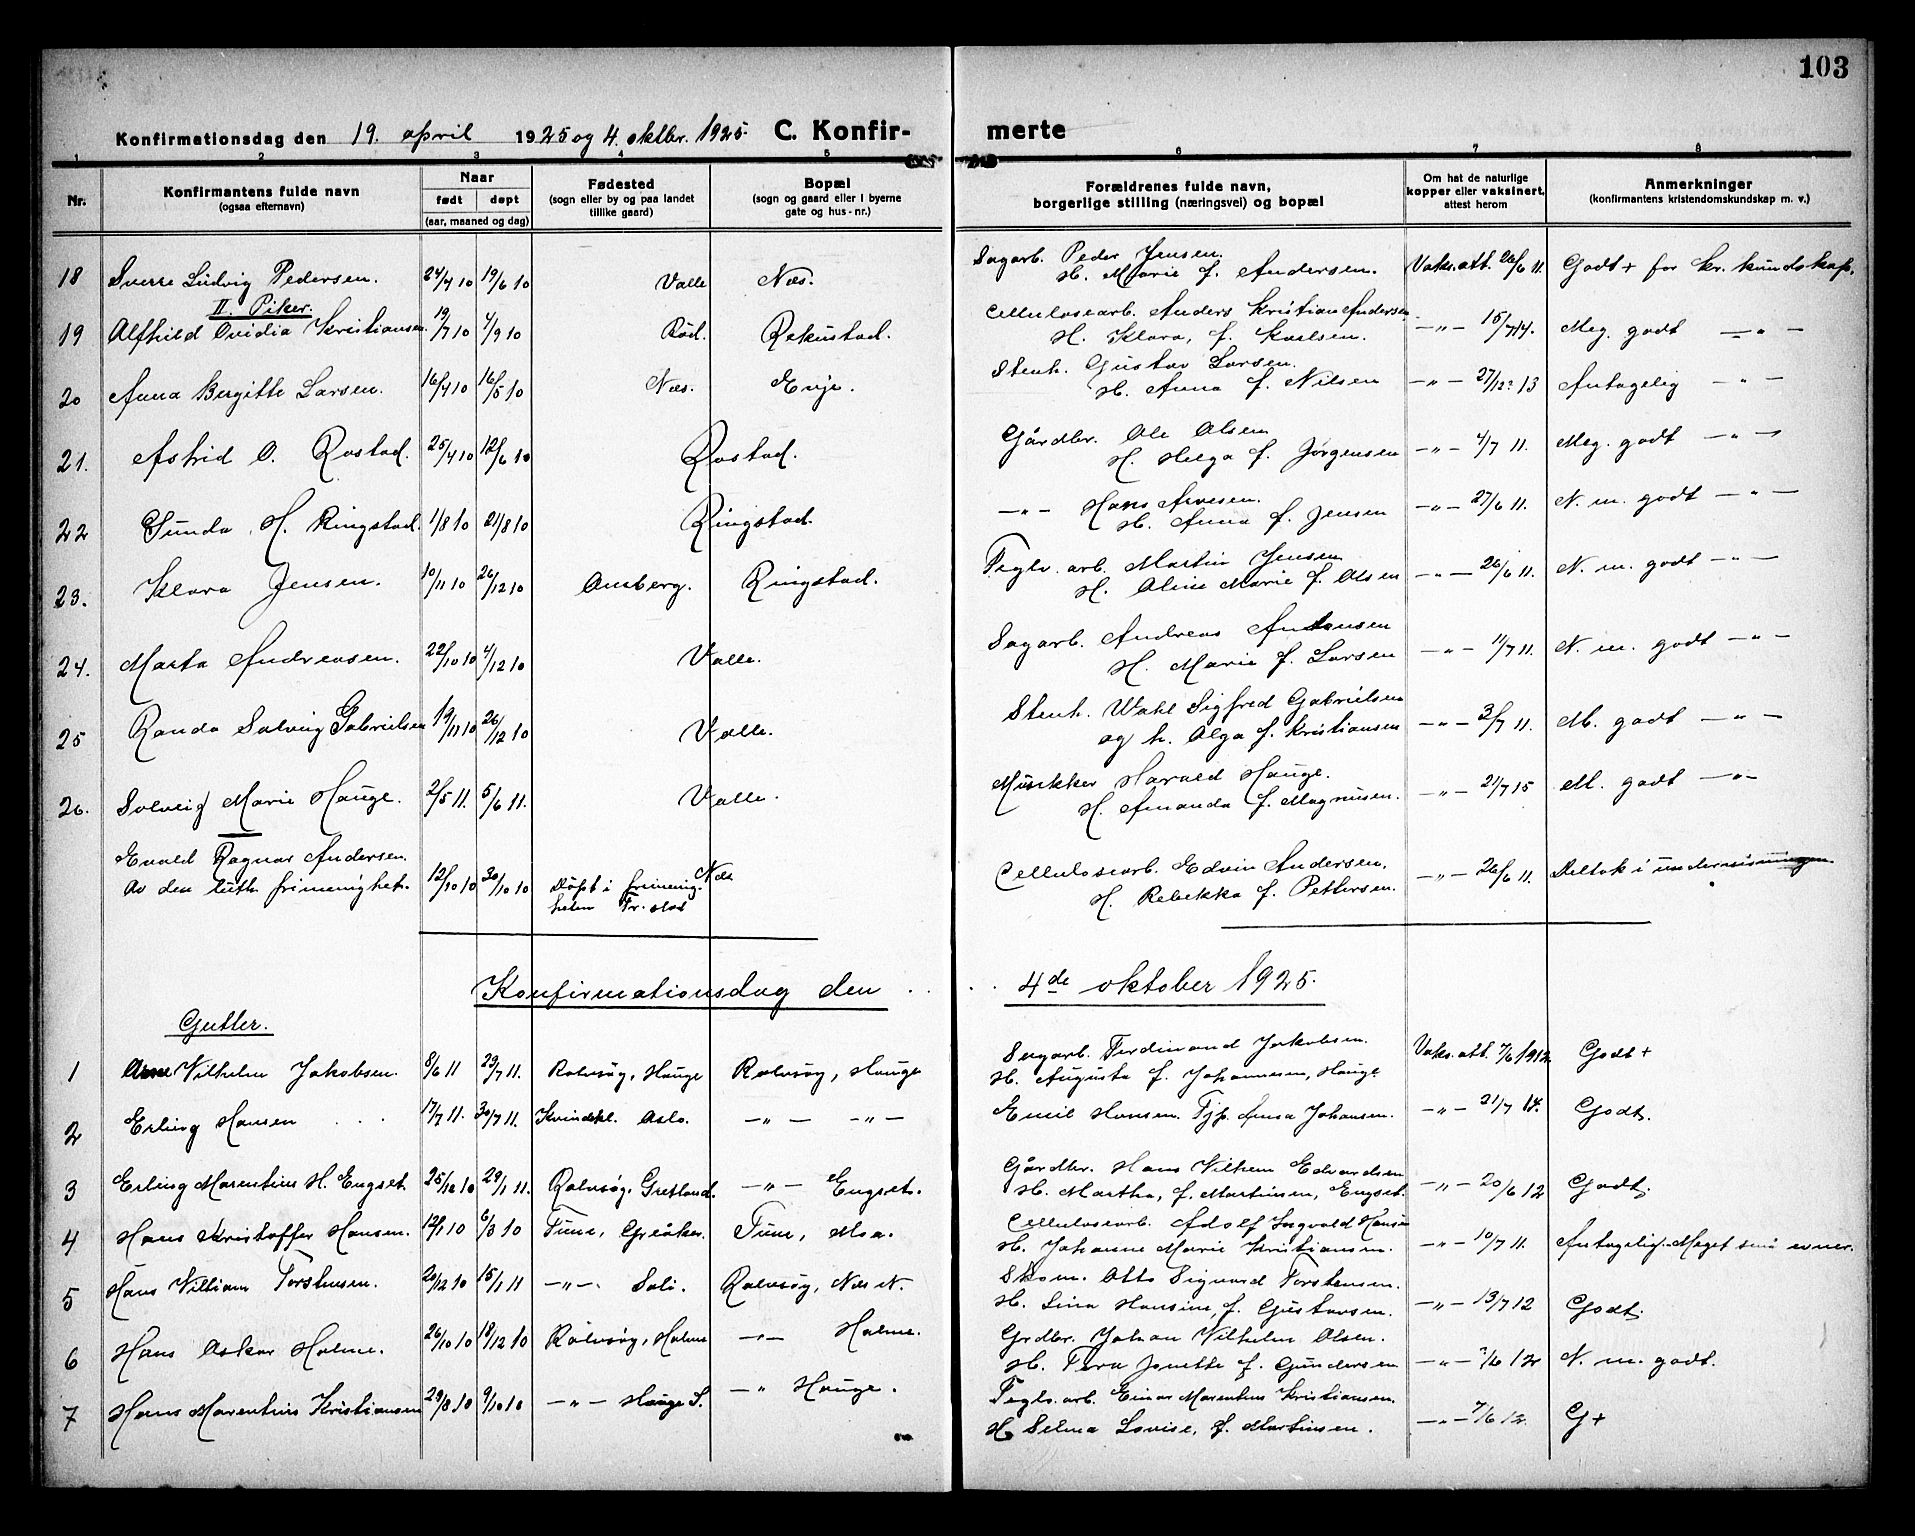 103
Konfirmationsdag den 19. april 1925 og 4. oktbr. 1925. C. Konfir- merte
1 2 3 4 5 6 7 8
Nr. Konfirmantens fulde navn (ogsaa efternavn) Naar født døpt (aar, maaned og dag) Fødested (sogn eller by og paa landet tillike gaard) Bopæl (sogn og gaard eller i byerne gate og hus-nr.) Forældrenes fulde navn, borgerlige stilling (næringsvei) og bopæl Om hat de naturlige kopper eller vaksinert, attest herom Anmerkninger (konfirmantens kristendomskundskap m. v.)
18 Sverre Ludvig Pedersen. 24/4 10 19/6 10 Valle Næs. Sagarb. Peder Jensen. Vaks. att. 26/6 11. Godt + for kr. kundskap.
H. Marie f. Andersen.
II. Piker.
19 Alfhild Ovidia Kristiansen. 19/7 10 4/9 10 Rød. Rekustad. Cellulosearb. Anders Kristian Andersen —"— 15/7 14. Meg. godt —"—
H. Klara, f. Karlsen.
20 Anna Birgitte Larsen. 16/4 10 16/5 10 Næs. Evje. Stenh. Gustav Larsen. —"— 27/12? 13 Antagelig —"—
H. Anna f. Nilsen
21. Astrid O. Rostad. 25/4 10 12/6 10 Rostad. Gårdbr. Ole Olsen —"— 4/7 11. Meg. godt —"—
H. Helga f. Jørgensen
22 Gunda H. Ringstad. 1/8 10 21/8 10 Ringstad. —"— Hans Arvesen. —"— 27/6 11. N. m. godt —"—
H. Anna f. Jensen
23. Klara Jensen. 10/11 10 26/12 10 Onsberg. Ringstad. Teglv. arb. Martin Jensen —"— 26/6 11. N. m. godt —"—
H. Oline Marie f. Olsen
24. Marta Andreasen. 22/10 10 4/12 10 Valle. Sagarb. Andreas Antonsen —"— 11/7 11. N. m. godt —"—
H. Marie f. Larsen
25 Randa Solveig Gabrielsen 19/11 10 26/12 10 Valle. Stenh. Wahl Sigfred Gabrielsen —"— 3/7 11. M. godt —"—
og h. Olga f. Kristiansen
26. Solveig Marie Hauge. 2/5 11. 5/6 11. Valle. Musikker Harald Hauge. —"— 21/7 15 M. godt —"—
H. Amanda f. Magnusen.
Evald Ragnar Andersen. 12/10 10 30/10 10 Døpt i frimenig- Næs Cellulosearb. Edvin Andersen. —"— 26/6 11. Deltok i undervisningen
Av den luth. frimenighet. heten Fr.stad H. Rebekka f. Pettersen.
Konfirmationsdag den .. .. 4de oktober 1925.
Gutter.
1 Arne Vilhelm Jakobsen. 8/6 11 29/7 11. Rolvsøy, Hauge Rolvsøy, Hauge Sagarb. Ferdinand Jakobsen. Vaks. att. 7/6 1912 Godt +
H. Augusta f. Johannesen, Hauge
2 Erling Hansen 17/7 11. 30/7 11. Kvindekl. Oslo. —"— —"— Emil Hansen. Tjp. Anna Johansen. —"— 21/7 14. Godt.
3 Erling Marentius H. Engset. 25/12 10 29/1 11. Rolvsøy. Gretland. —"— Engset. Gårdbr. Hans Vilhelm Edvardsen —"— 20/6 12 Godt.
H. Martha, f. Martinsen, Engset.
4 Hans Kristoffer Hansen. 12/1 10 6/3 10 Tune, Greåker. Tune, Moa. Cellulosearb. Adolf Ingvald Hansen —"— 10/7 11. Antagelig. Meget små evner.
H. Johanne Marie Kristiansen.
5 Hans Villiam Torstensen. 20/12 10 15/1 11 —"— Soli. Rolvsøy, Næs N. Skom. Otto Sigvard Torstensen. —"— 13/7 12 Godt.
H. Lina Hansine, f. Gustavsen.
6 Hans Oskar Holme. 26/10 10 18/12 10 Rolvsøy, Holme —"— Holme. Grdbr. Johan Vilhelm Olsen. —"— 7/6 12 N. m. godt.
H. Tera Jonette f. Gundersen
7 Hans Marentius Kristiansen 29/8 10 9/10 10 —"— Hauge S. —"— Hauge. Teglv. arb. Einar Marentius Kristiansen. —"— 7/6 12. G +
H Selma Lovise, f. Martinsen.